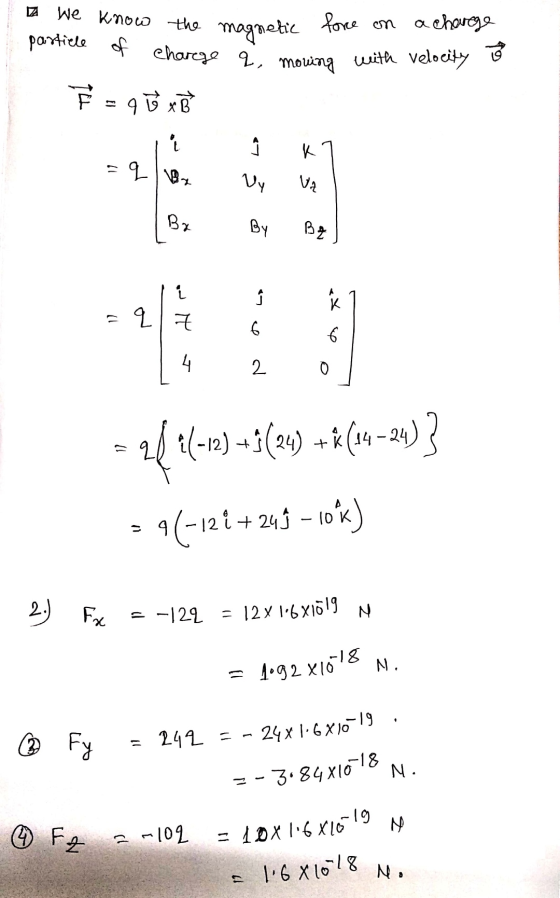 We know the magnetic force on a charge
particle of charge q, moving with velocity v⃗
F⃗ = q v⃗ × B⃗
= q [ î ĵ k
Vx Vy Vz
Bx By Bz ]
= q [ î ĵ k̂
7 6 6
4 2 0 ]
= q { î(-12) + ĵ(24) + k̂(14-24) }
= q (-12 î + 24 ĵ - 10 k̂)
2.) Fx = -12q = 12 × 1.6×10^-19 N
= 1.92 × 10^-18 N.
③ Fy = 24q = - 24 × 1.6 × 10^-19 .
= - 3.84 × 10^-18 N.
④ Fz = -10q = 10 × 1.6 × 10^-19 N
= 1.6 × 10^-18 N.